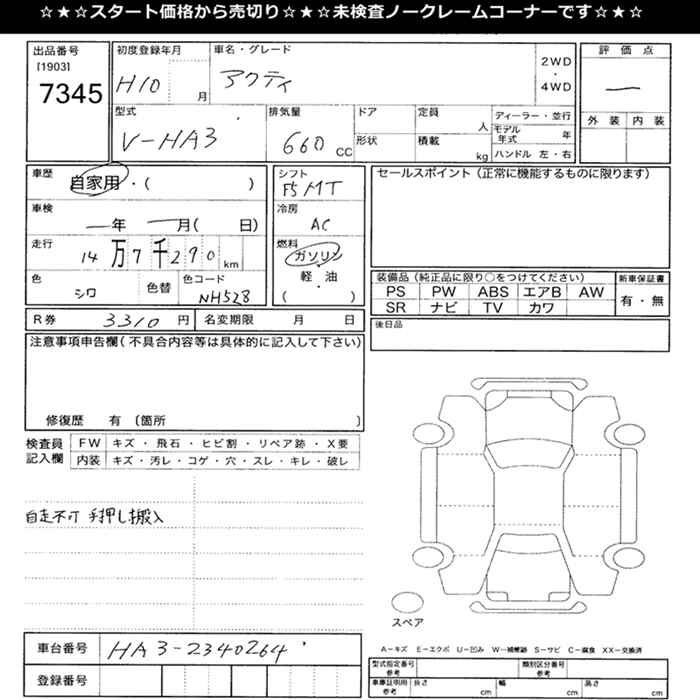 ☆★☆★スタート価格から売切り☆★☆★未検査ノークレームコーナーです☆★☆★
出品番号 初度登録年月 車名・グレード 評価点
[1903] H10 月 アクティ 2WD・4WD —
7345
型式 排気量 ドア 定員 ディーラー・並行 外装 内装
V-HA3 660 CC 人 モデル年式 年
形状 積載 kg ハンドル 左・右
車歴 自家用・( ) シフト F5MT セールスポイント(正常に機能するものに限ります)
車検 —年 —月( 日) 冷房 AC
走行 14万7千290km 燃料 ガソリン
軽・油
( )
色 シロ 色替 色コード NH528
装備品(純正品に限り○をつけてください) 新車保証書
PS PW ABS エアB AW 有・無
SR ナビ TV カワ
R券 3310円 名変期限 月 日 後日品
注意事項申告欄(不具合内容等は具体的に記入して下さい)
修復歴 有 〔箇所 〕
検査員記入欄 FW キズ・飛石・ヒビ割・リペア跡・X要
内装 キズ・汚レ・コゲ・穴・スレ・キレ・破レ
自走不可 手押し搬入
スペア
車台番号 HA3-2340264
登録番号
A―キズ E―エクボ U―凹み W―補修跡 S―サビ C―腐食 XX―交換済
型式指定番号 参考 類別区分番号 参考
車庫証明用 参考 長さ cm 幅 cm 高さ cm